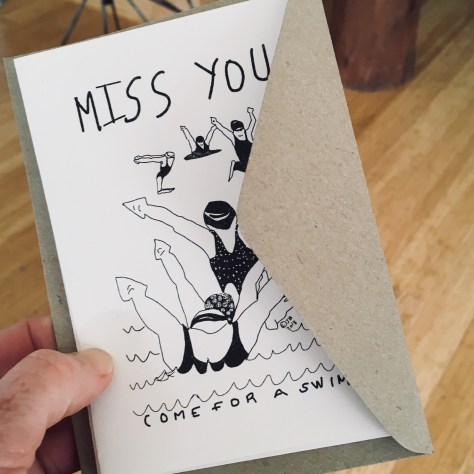 MISS YOU
COME FOR A SWIM